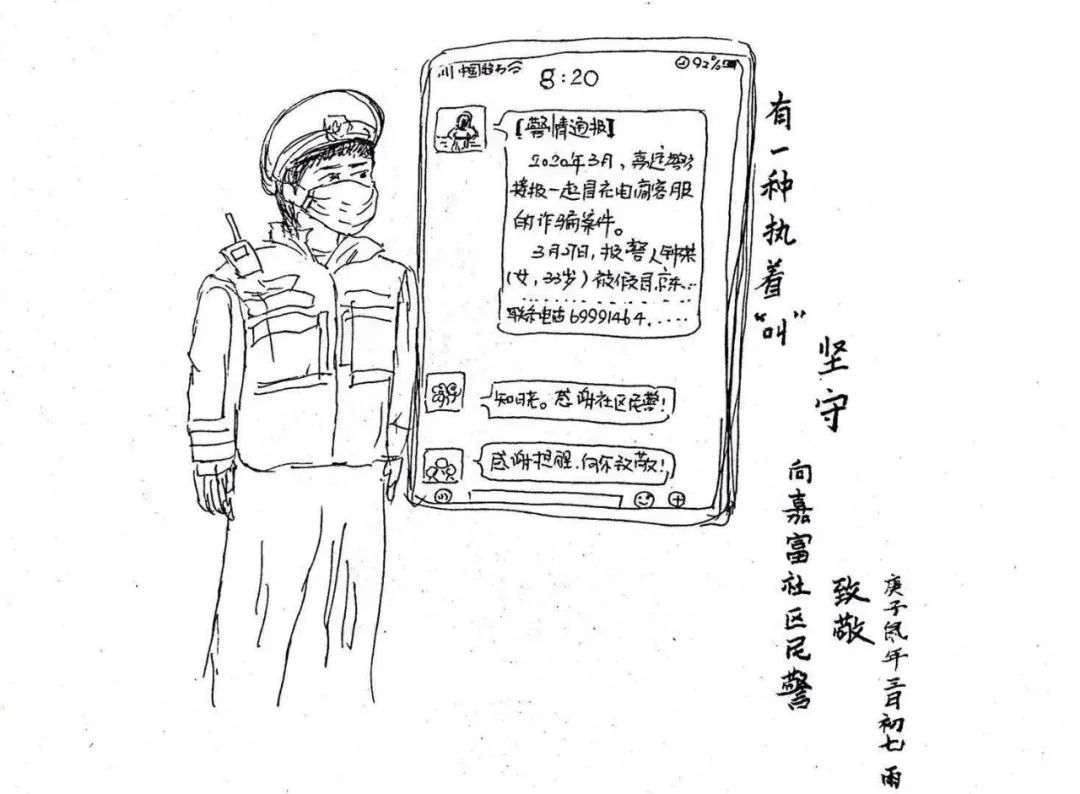 中国移动
92%
8:20
【警情通报】
2020年3月，嘉定警方
接报一起冒充电商客服
的诈骗案件。
3月27日，报警人钟某
（女，33岁）被假冒京东…
联系电话69991464.....
知晓。感谢社区民警！
感谢提醒，向你致敬！
有一种执着
“叫”
坚守
向嘉富社区民警
致敬
庚子鼠年三月初七 雨